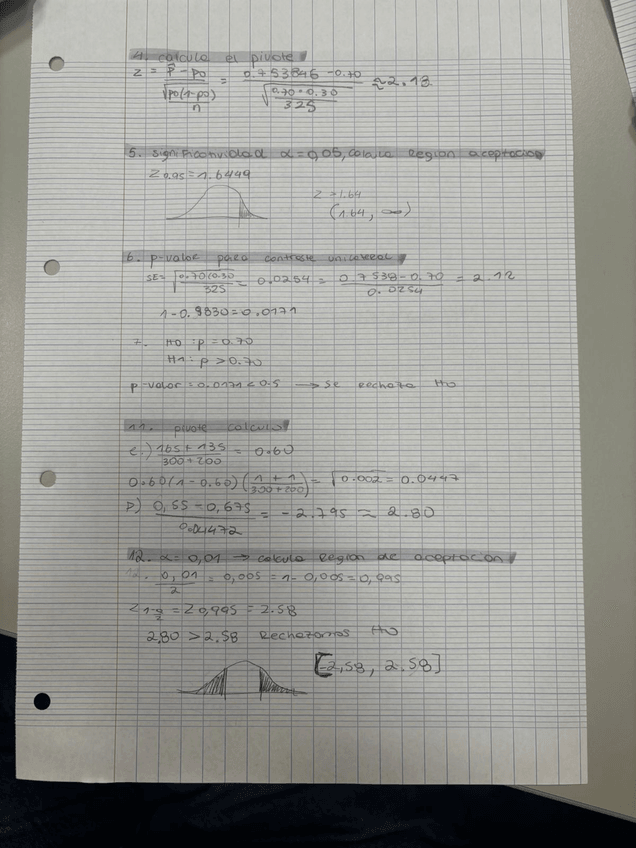 4. calcula el pivote
z = p̂ - p0 / √(p0(1-p0)/n) = 0.753846 - 0.70 / √(0.70 · 0.30 / 325) ≈ 2.13
5. significatividad α = 0,05, calcula Region aceptacion
Z 0.95 = 1.6449
z = 1.64
(1.64, ∞)
6. p-valor para contraste unilateral
SE = √(0.70(0.30 / 325) = 0.0254 = 0.7538 - 0.70 / 0.0254 = 2.12
1 - 0.9830 = 0.0171
7. H0 : p = 0.70
H1 : p > 0.70
p-valor = 0.0171 < 0.5 → Se rechaza H0
11. pivote calculo
c.) 165 + 135 / 300 + 200 = 0.60
0.60(1 - 0.60)(1 + 1 / 300 + 200) = √0.002 = 0.0447
P) 0,55 - 0,675 / 0.04472 = - 2.795 = 2.80
12. α = 0,01 → calcula Region de aceptacion
12. 0,01 / 2 = 0,005 = 1 - 0,005 = 0,995
Z 1-α/2 = Z 0,995 = 2.58
2.80 > 2.58 Rechazamos H0
[-2,58, 2.58]